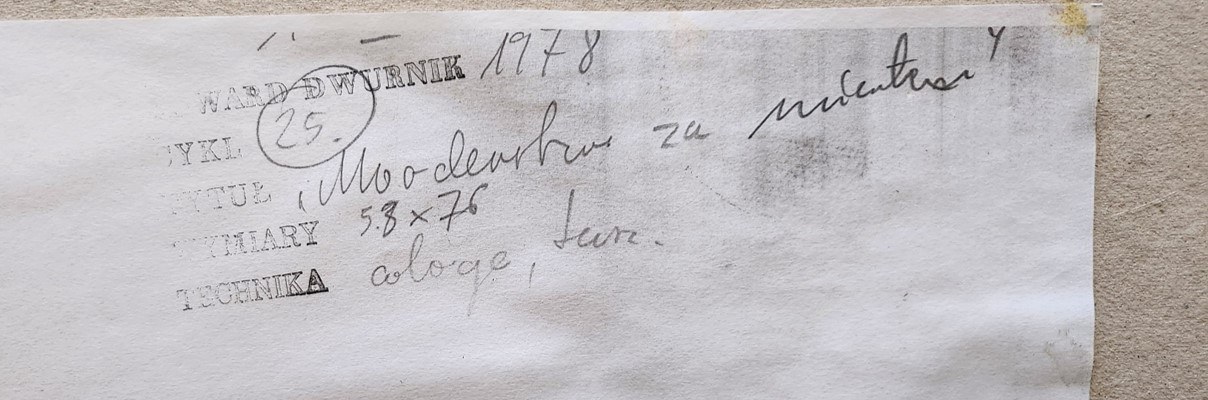 WARD DWURNIK 1978
YKL 25.
YTUŁ Morderstwo za
YMIARY 58x76
TECHNIKA cologe,